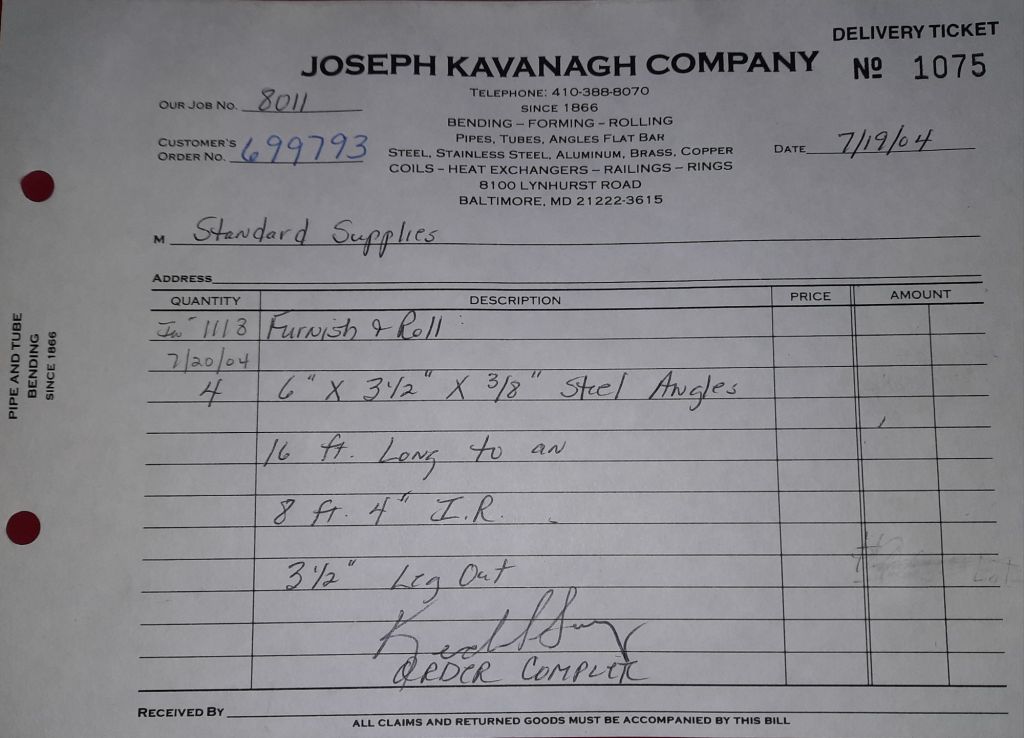 DELIVERY TICKET
JOSEPH KAVANAGH COMPANY
Nº 1075
TELEPHONE: 410-388-8070
SINCE 1866
BENDING – FORMING – ROLLING
PIPES, TUBES, ANGLES FLAT BAR
STEEL, STAINLESS STEEL, ALUMINUM, BRASS, COPPER
COILS – HEAT EXCHANGERS – RAILINGS – RINGS
8100 LYNHURST ROAD
BALTIMORE, MD 21222-3615
OUR JOB NO. 8011
CUSTOMER'S ORDER NO. 699793
DATE 7/19/04
M Standard Supplies
ADDRESS
QUANTITY DESCRIPTION PRICE AMOUNT
1118 Furnish & Roll
7/20/04
4 6" X 3 1/2" X 3/8" Steel Angles
16 ft. Long to an
8 ft. 4" I.R.
3 1/2" Leg Out
ORDER COMPLETE
RECEIVED BY
ALL CLAIMS AND RETURNED GOODS MUST BE ACCOMPANIED BY THIS BILL
PIPE AND TUBE
BENDING
SINCE 1866